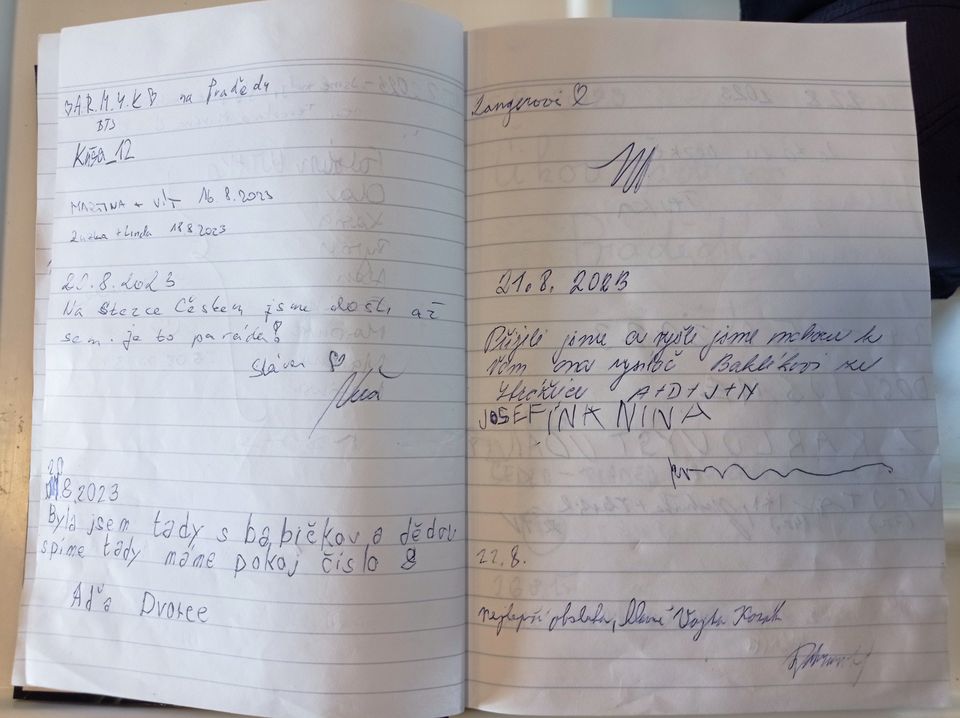 A.R.M.Y.K na Pradědy
BTS
Kuba_12
MARTINA + VÍT 16.8.2023
Zuzka + Linda 18.8.2023
20.8.2023
Na Stezce Českem jsme došli až
sem. je to paráda!
20.8.2023
Byla jsem tady s babičkov a dědov
spíme tady máme pokoj číslo 8
Aďa Dvorce
Langerovi ♡
21.8.2023
Přijeli jsme a vyšli jsme nahoru k
Vám na
A+D+J+N
JOSEFÍNA NINA
22.8.
nejlepší obsluha, Vojta Kozák